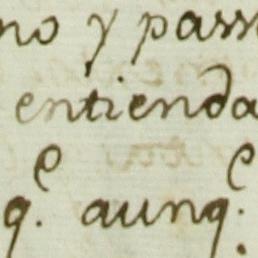 no y pass
entienda
q.e aunq.e